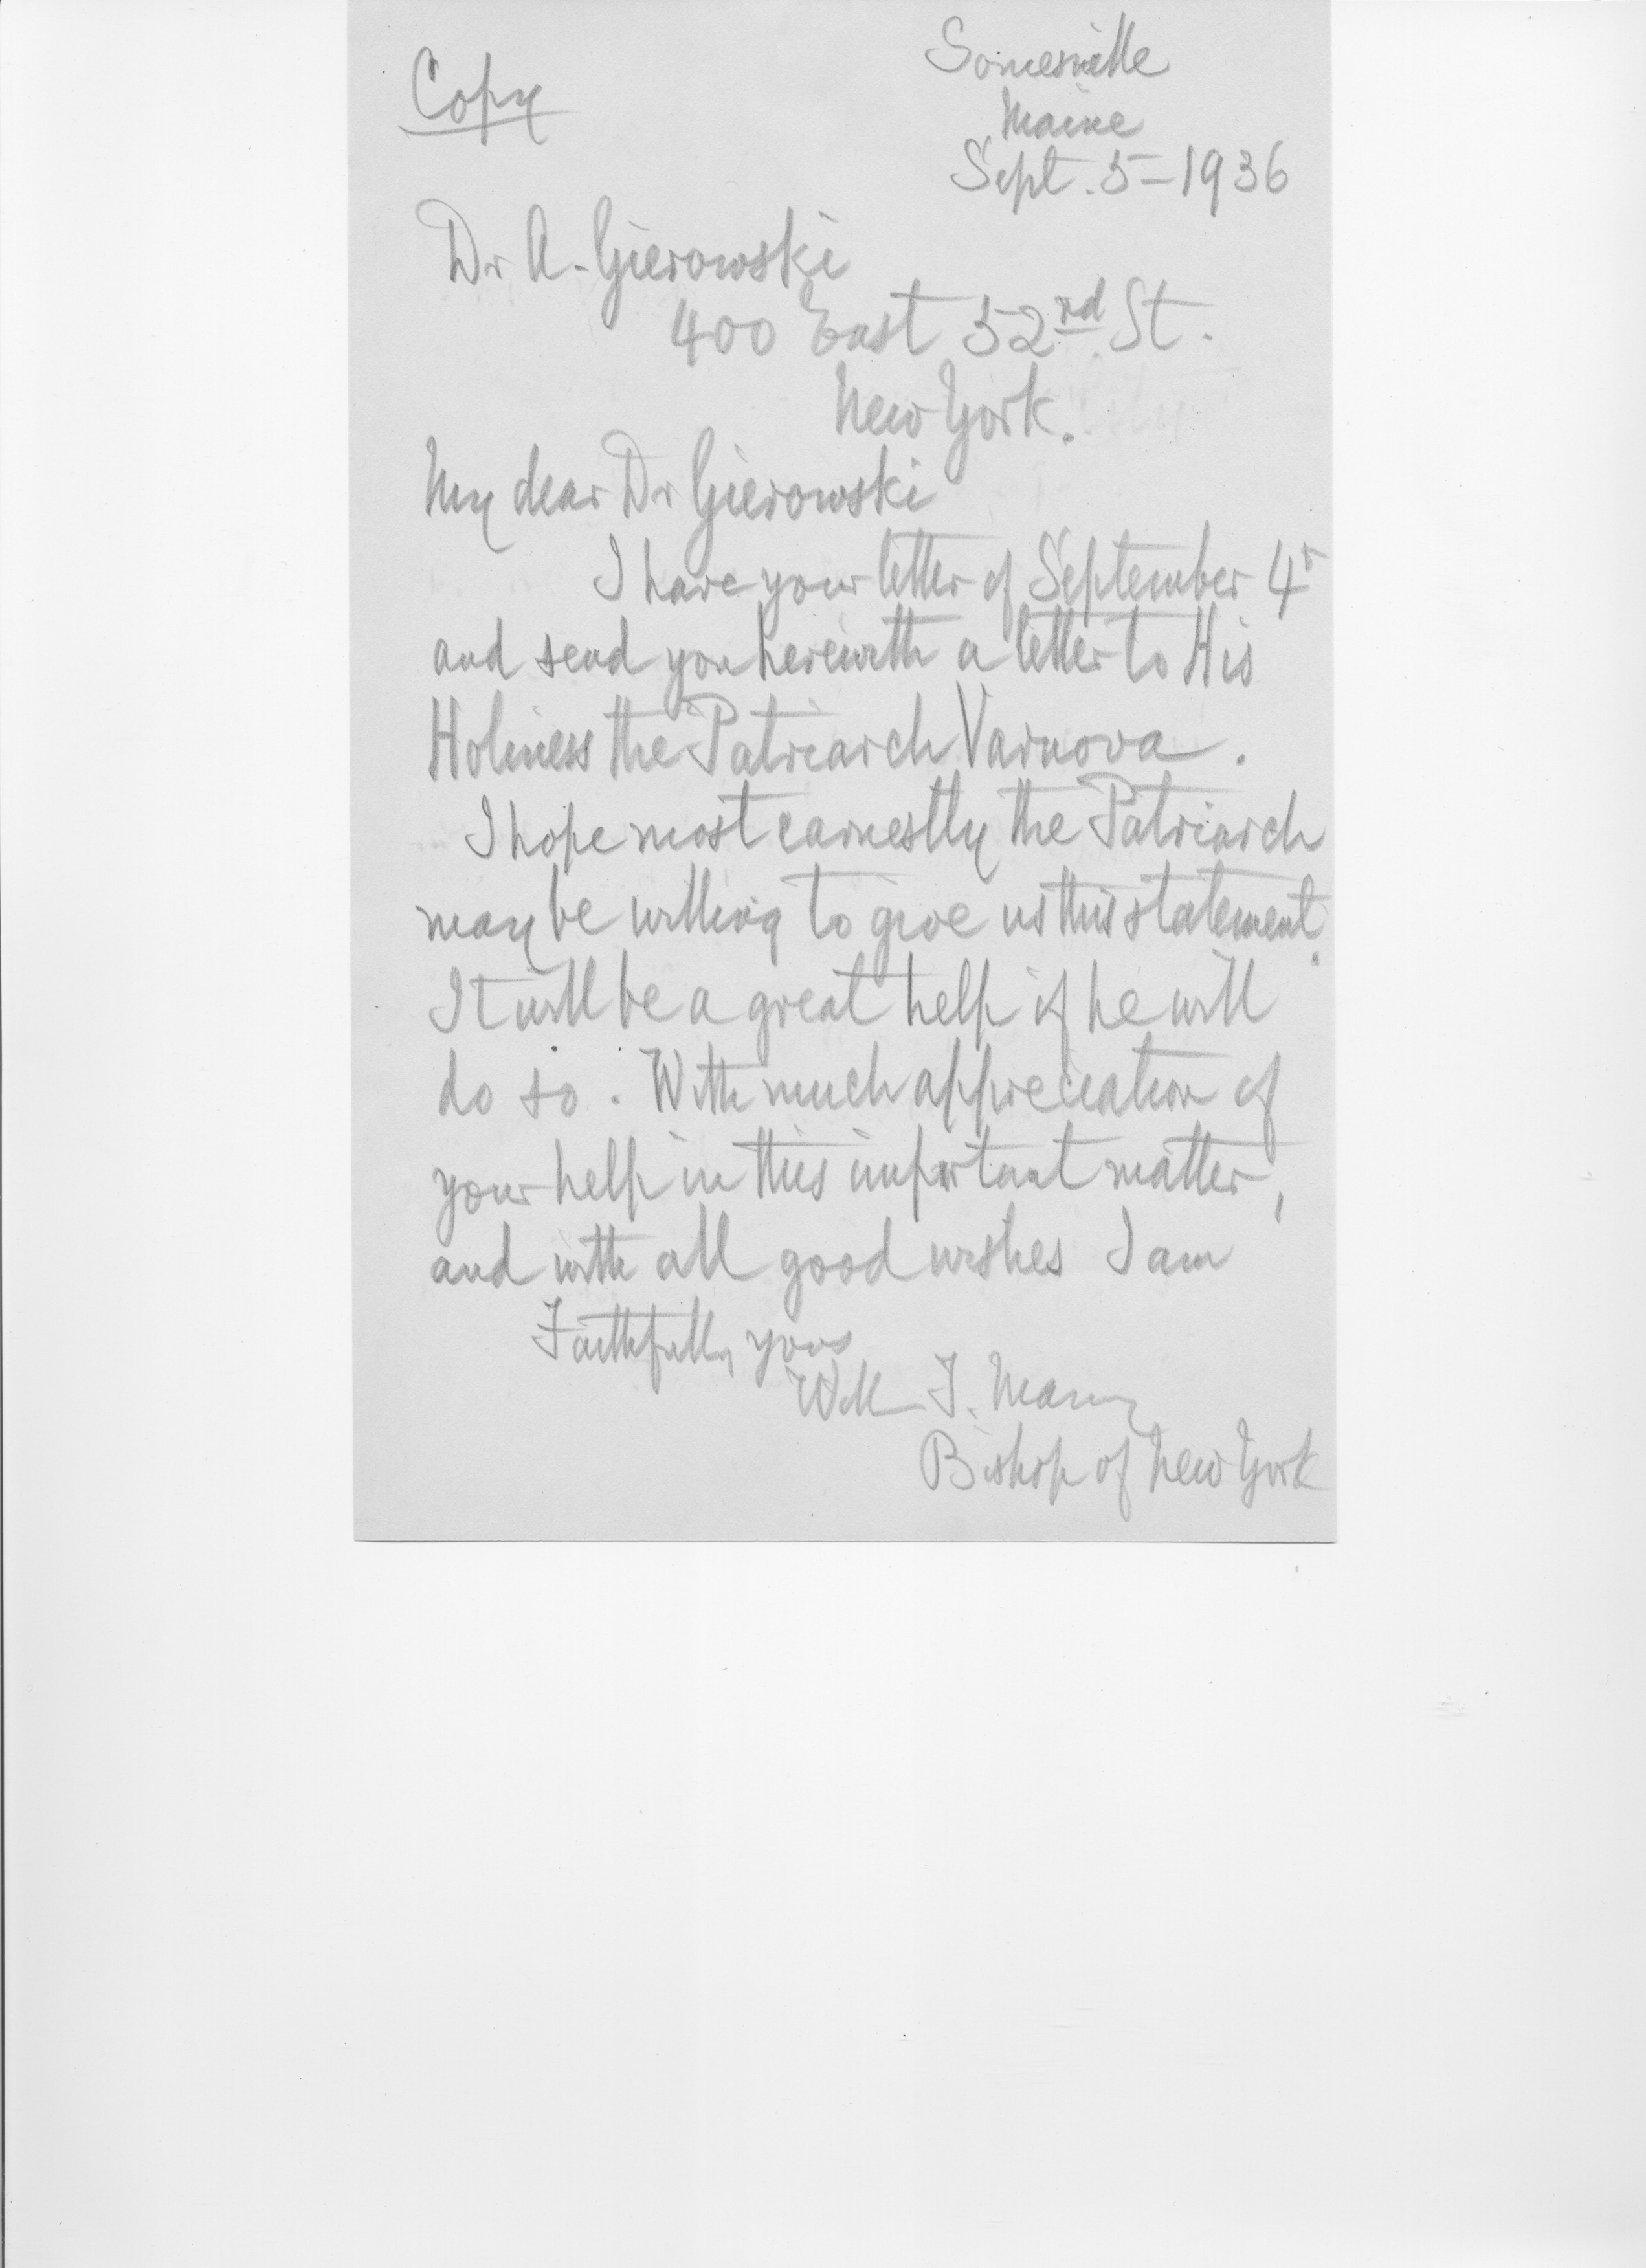 Copy
Somesville
Maine
Sept. 5 – 1936
Dr A. Gierowski
400 East 52nd St.
New York.
My dear Dr Gierowski
I have your letter of September 4
and send you herewith a letter to His
Holiness the Patriarch Varnova.
I hope most earnestly the Patriarch
may be willing to give us this statement.
It will be a great help if he will
do so. With much appreciation of
your help in this important matter,
and with all good wishes I am
Faithfully yours
T. Mann
Bishop of New York